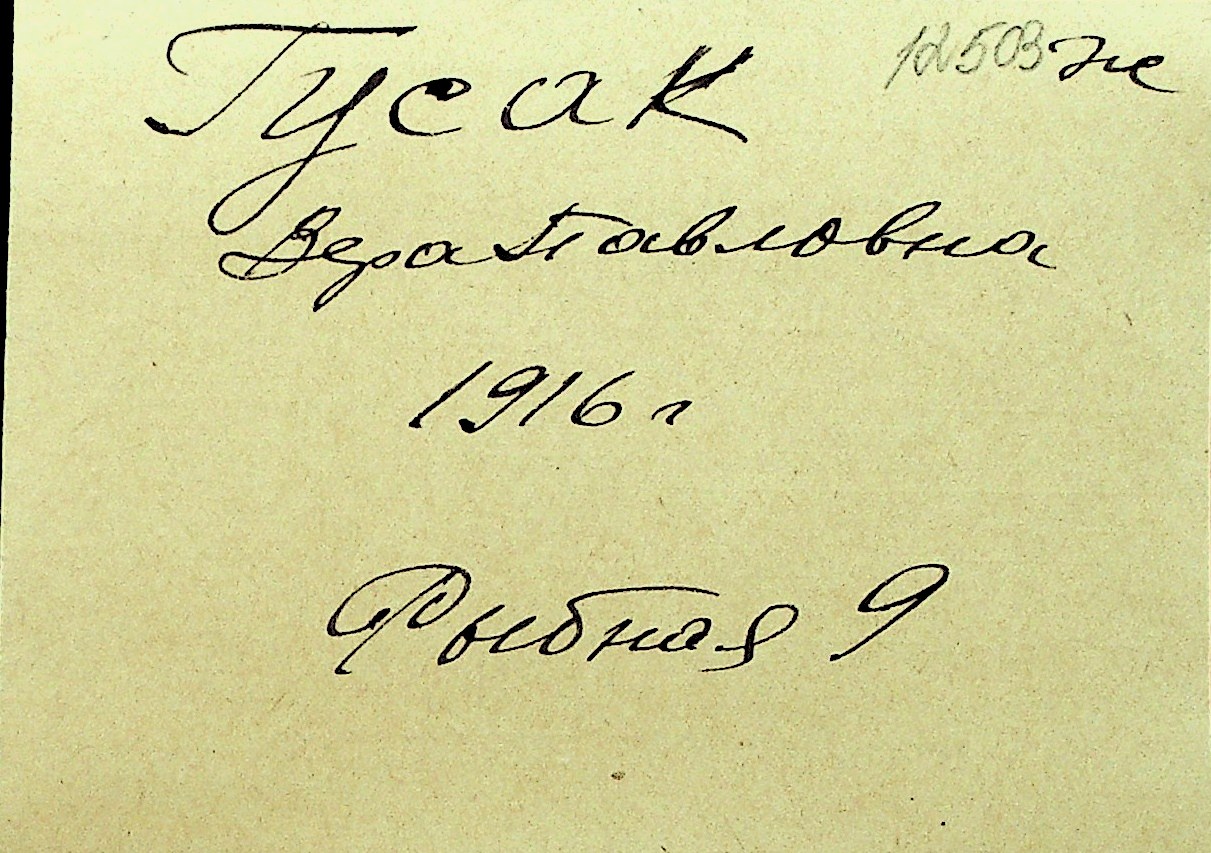 Гусак 12503 же
Вера Павловна
1916 г
Рыбная 9